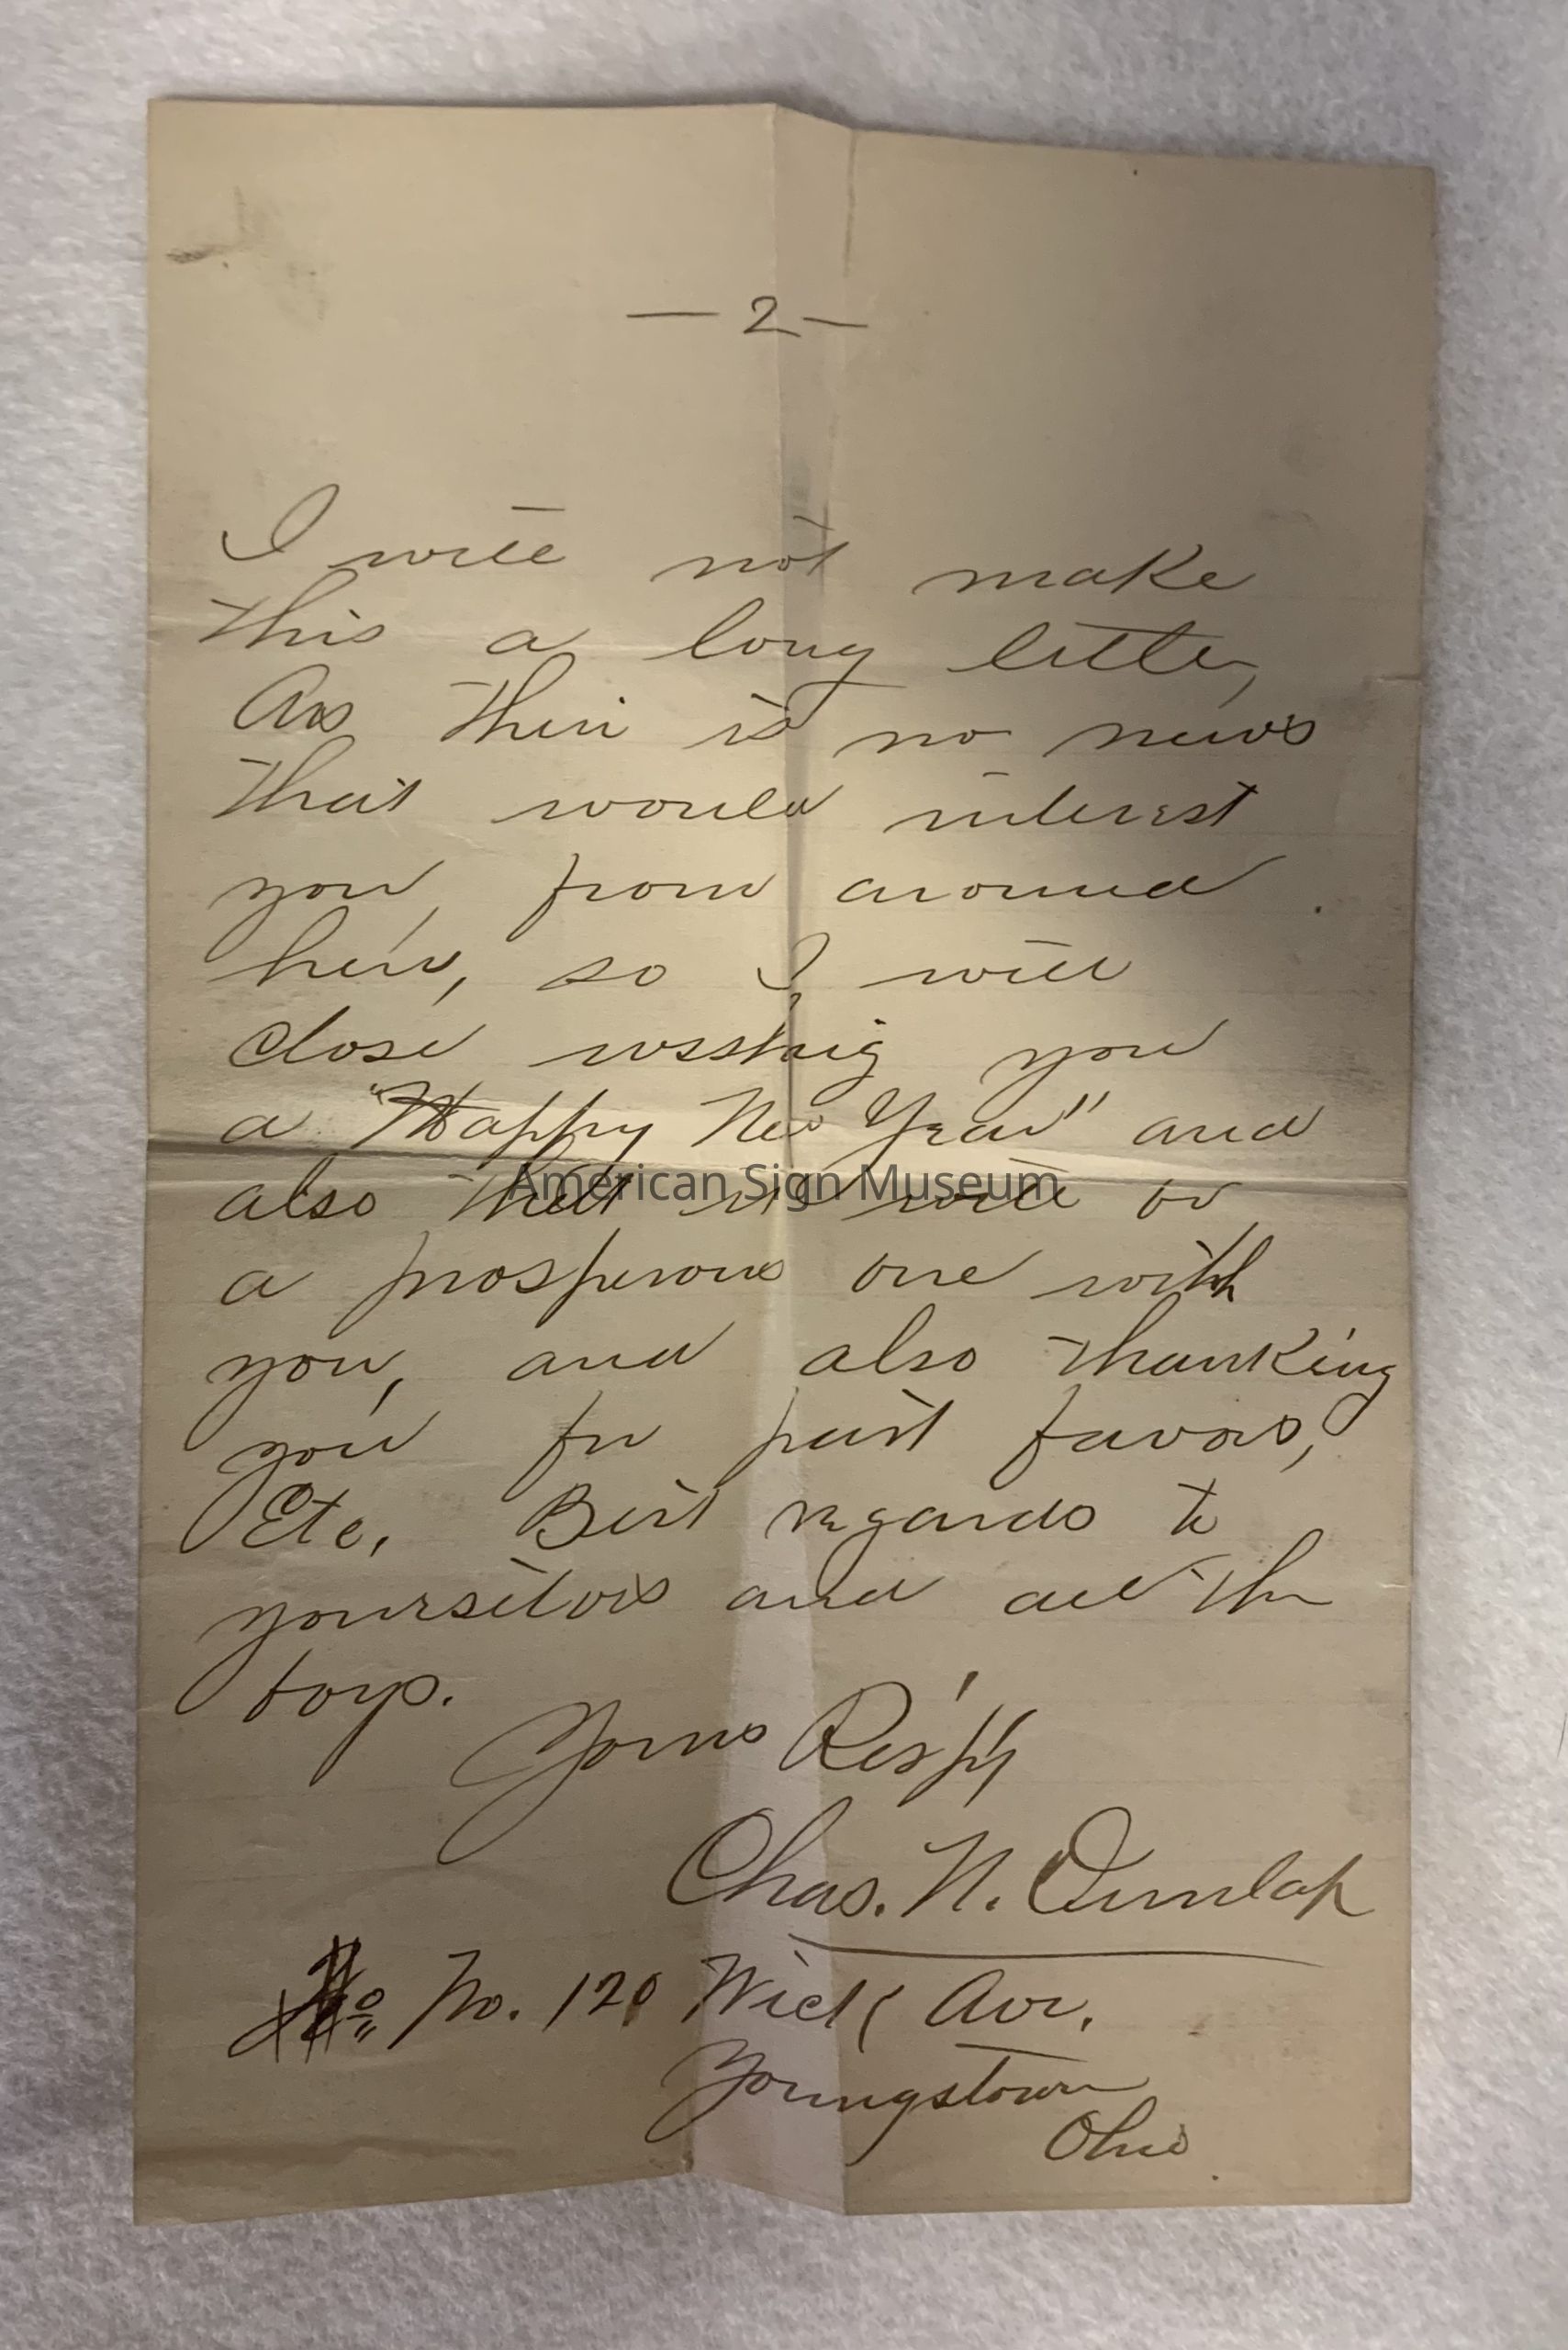 — 2 —
I will not make
this a long letter,
As their is no news
that would interest
you, from around
here, so I will
close wishing you
a "Happy New Year" and
also that it will be
a prosperous one with
you, and also thanking
you for past favors,
Etc. Best regards to
yourselves and all the
boys.
Yours Resp'f'y
Chas. N. Dunlap
No. 120 Wick Ave.
Youngstown
Ohio
American Sign Museum